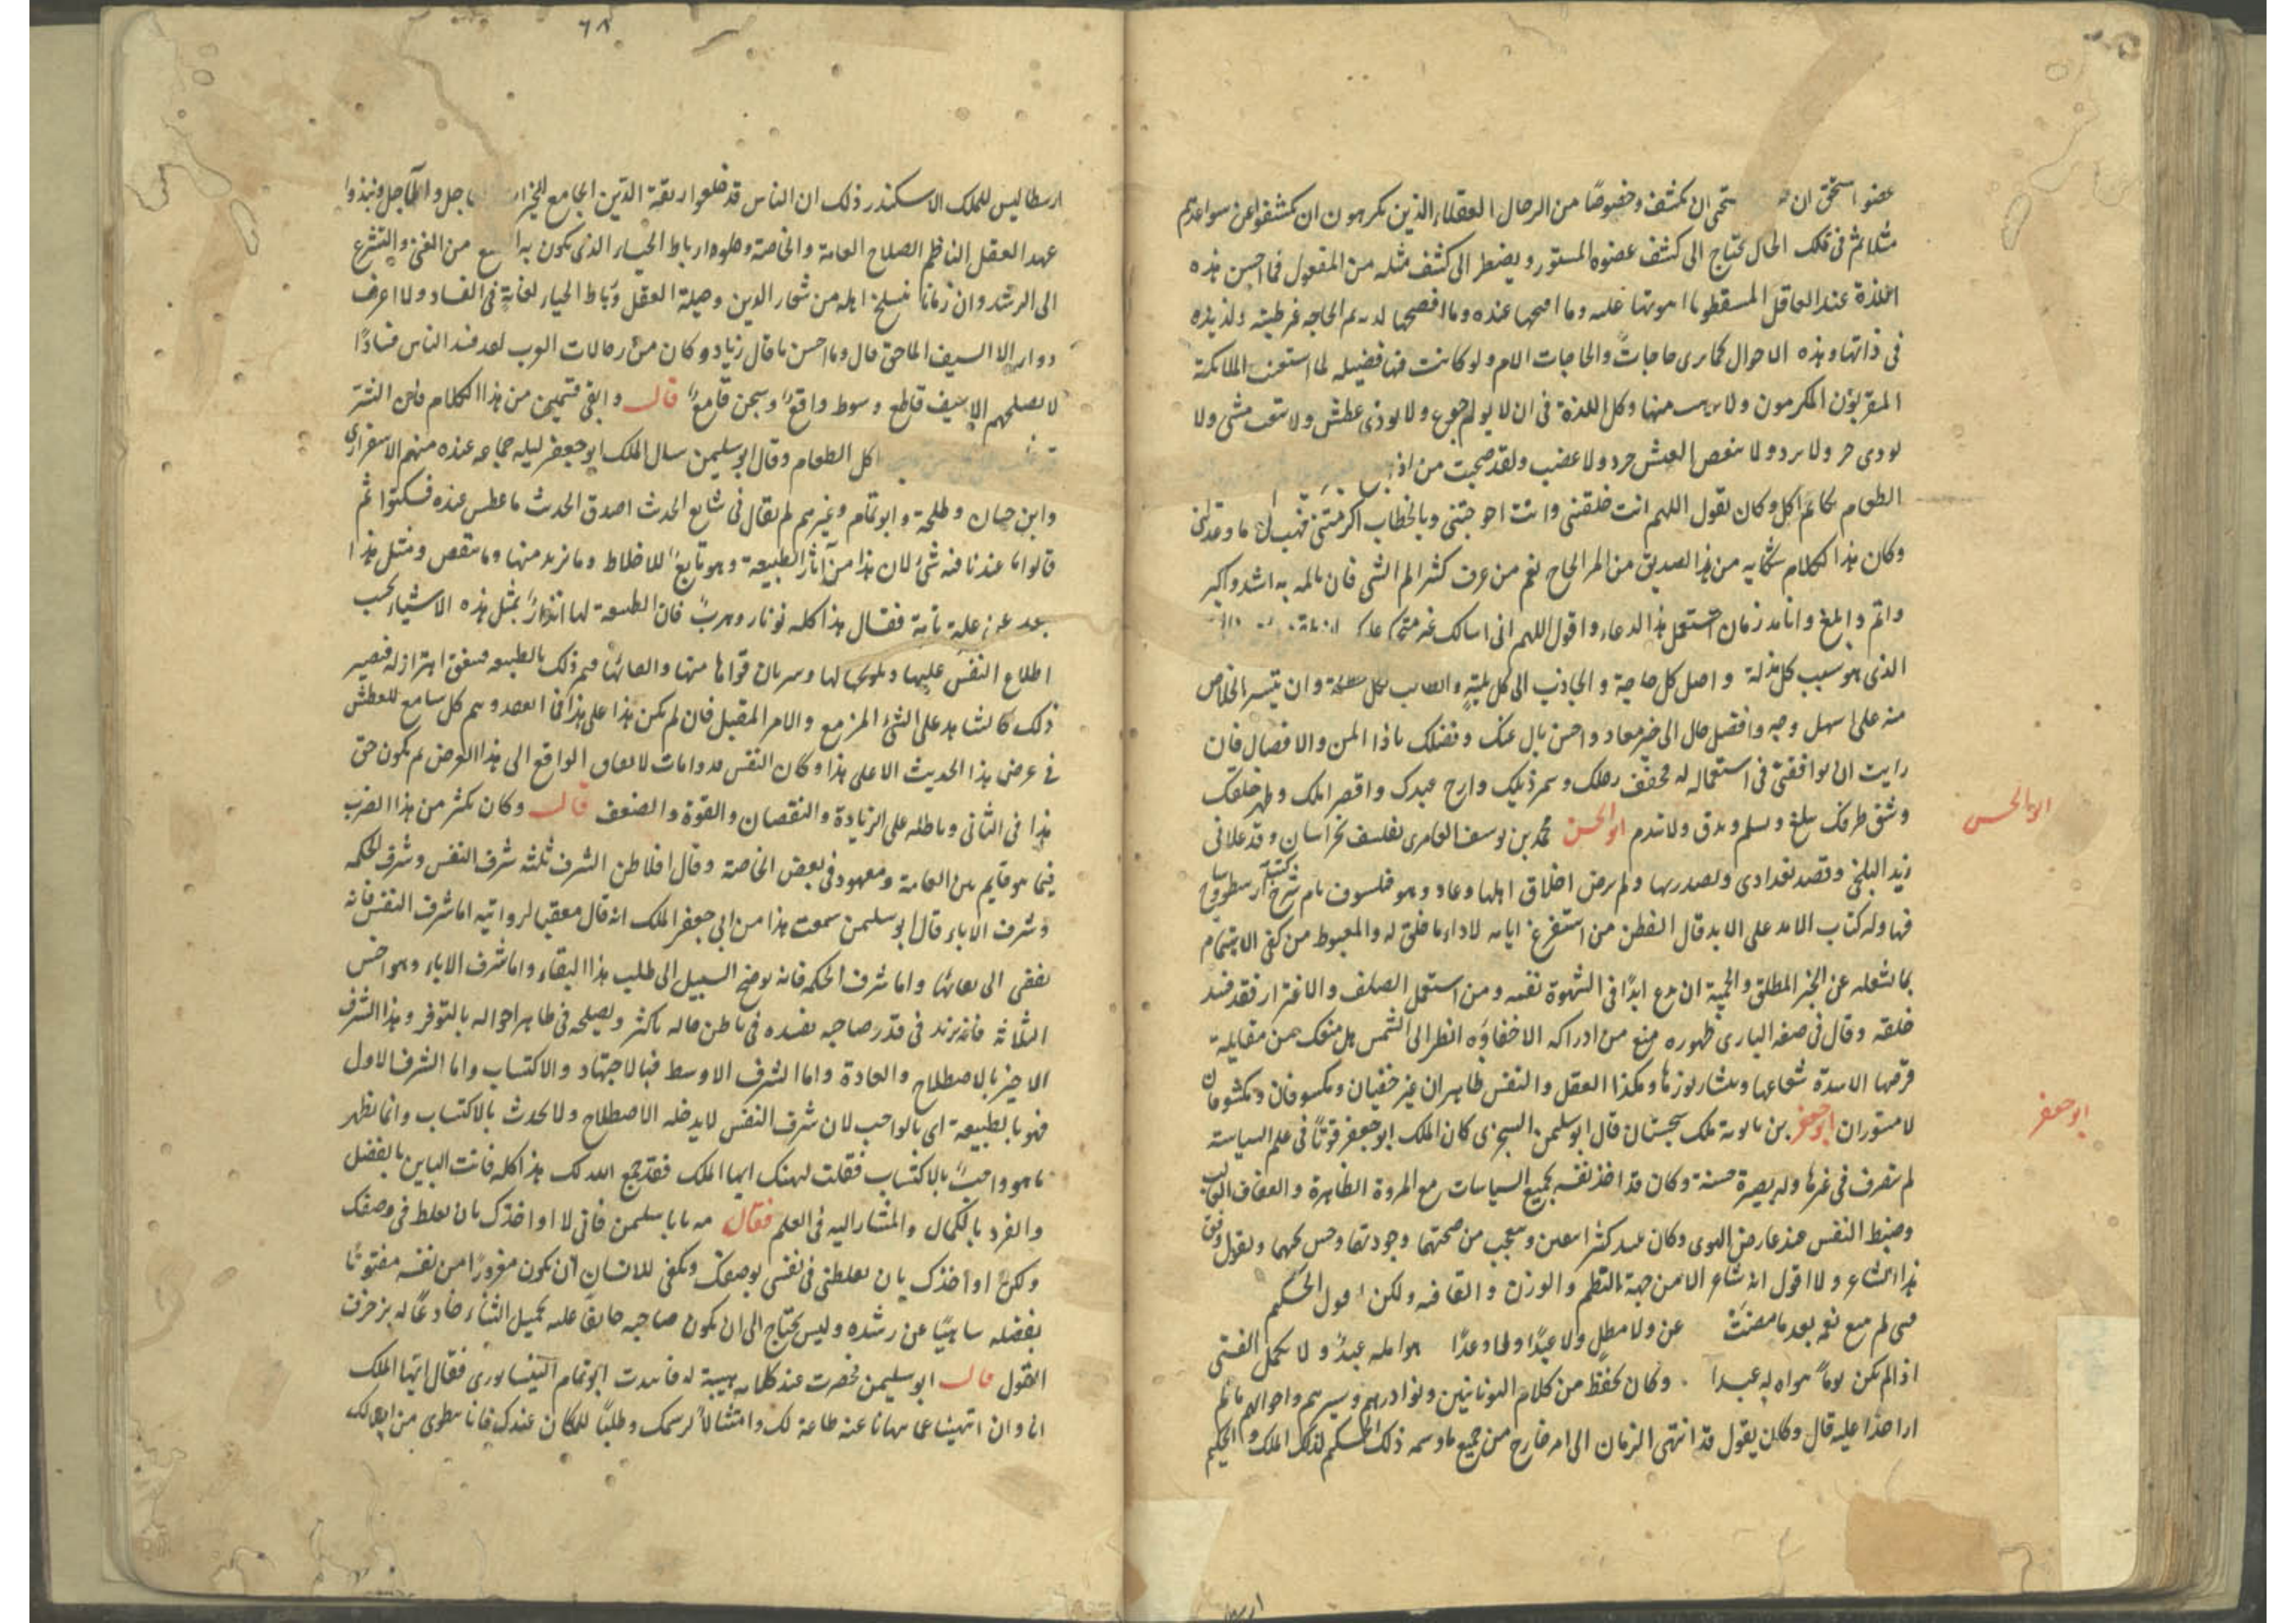 عضوا استحق ان يستحى ان يكشف وخصوصًا من الرجال العقلاء الذين يكرهون ان يكشفوا عن سواعدهم
مثلا ثم فى تلك الحال يحتاج الى كشف عضوه المستور ويضطر الى كشف مثله من المفعول فما احسن هذه
اللذة عند العاقل المسقط وما اهونها عليه وما اقبحها عنده وما افضحها لديه ثم الحاجه غير طيبه ولذيذه
فى ذاتها وهذه الاحوال كما ترى حاجات والحاجات الام ولو كانت فيها فضيله لما استغنت الملائكة
المقربون المكرمون ولا منها وكل اللذة فى ان لا يولم جوع ولا يوذى عطش ولا يتعب مشى ولا
يوذى حر ولا برد ولا ينغص العيش حرد ولا غضب ولقد صحبت من اذا
الطعام كانما اكل وكان يقول اللهم انت خلقتنى وانت احوجتنى وبالخطاب اكرمتنى فهب لى ما وعدتنى
وكان هذا الكلام شكايه من هذا الصديق من الم الحاح نعم من عرف كثر الم الشى فان تالمه به اشد واكبر
واتم وابلغ وانا مذ زمان استعمل هذا الدعاء واقول اللهم انى اسالك غير متحكم عليك
الذى هو سبب كل مذلة واصل كل حاجة والجاذب الى كل بلية والطالب لكل مظلمة وان تيسر الخلاص
منه على اسهل وجه وافضل حال الى خير معاد واحسن بال عنك وفضلك ياذا المن والافضال فان
رايت ان توافقنى فى استعماله له فخفف رحلك وشمر ذيلك وارح عبدك واقصر املك وطهر خلقك
وشق طرفك تبلغ وتسلم وتدق ولا تندم ابو الحسن محمد بن يوسف العامرى تفلسف بخراسان وقد علا ابى
ابو الحسن
زيد البلخى وقصد بغداد وتصدر بها ولم يرض اخلاق اهلها وعاد وهو فيلسوف تام شرح كتب ارسطو وشاخ
فيها وله كتاب الامد على الابد قال الفطن من استفرغ ايامه لاداء ما خلق له والمغبوط من كفى الاهتمام
بما شغله عن الخير المطلق والخيبة ان يدع ابدًا فى الشهوة نفسه ومن استعمل الصلف والاغترار فقد فسد
خلقه وقال فى صفه البارى ظهوره منع من ادراكه الا خفاؤه انظر الى الشمس هل منعك من مقابلة
قرصها الا شدة شعاعها وانتشار نورها وهكذا العقل والنفس ظاهران غير خفيان ومكسوفان ومكشوفان
لا مستوران ابو جعفر بن بابويه ملك سجستان قال ابو سليمن السجزى كان الملك ابو جعفر قويًا فى علم السياسة
ابو جعفر
لم يتصرف فى غيرها وله بصيرة حسنة وكان قد اخذ نفسه بجميع السياسات مع المروة الظاهرة والعفاف الغالب
وضبط النفس عند عارض الهوى وكان ينشد كثيرا بيتين ويعجب من صحتهما وجودتهما وحسن نحتهما ويقول وفق
هذا الشاعر ولا اقول انه شاعر الا من جهة النظم والوزن والقافيه ولكن اقول الحكيم
عن ولا مطل ولا عبدًا ولما وعدًا هوا مله عبدٌ ولا يكمل الفتى
اذا لم يكن يوماً هواه له عبدا وكان يحفظ من كلام اليونانيين ونوادرهم وسيرهم واحوالهم ما لم
ار احدًا عليه قال وكان يقول قد انتهى الزمان الى امر خارج من جميع ما وسمه ذلك الحكيم لذلك الملك والحكيم
ارسطا
٦٨
ارسطاليس للملك الاسكندر ذلك ان الناس قد خلعوا ربقة الدين الجامع للخيرات العاجل والآجل ونبذوا
عهد العقل الناظم الصلاح العامة والخاصة وحلوه ارباط الحياء الذى يكون به من الغى والتشرع
الى الرشد وان زمانا ينسلخ اهله من شعار الدين وحيلة العقل ورباط الحياء لغاية فى الفساد ولا اعرف
دواء الا السيف الماحق قال وما احسن ما قال زياد وكان من رجالات العرب لقد فسد الناس فسادًا
لا يصلحهم الا سيف قاطع وسوط واقع وسجن قامع قال وابقى قتيمين من هذا الكلام فان الشر
اكل الطعام وقال ابو سليمن سال الملك ابو جعفر ليله جماعه عنده منهم الاسفزارى
وابن حيان وطلحة وابو تمام وغيرهم لم يقال فى شايع الحدث اصدق الحدث ما عطس عنده فسكتوا ثم
قالوا ما عندنا فيه شئ لان هذا من آثار الطبيعة وهو تابع للاخلاط وما نزيد منها وما ينقص ومثل هذا
بعد عن علة ثابتة فقال هذا كله نونار وهرب فان الطبيعة لها انذار بمثل هذه الاشياء بحسب
اطلاع النفس عليها وتلويحها لها وسريان قواها منها والعائها فيهم ذلك بالطبيعه فيتفق اهتزاز له فيصير
ذلك كالشاهد على الشئ المزمع والامر المقبل فان لم يكن هذا على هذا فى القصد وهم كل سامع للعطش
فى عرض هذا الحديث الا على هذا وكان النفس الواقع الى هذا العرض لم يكون حق
هذا فى الثانى وباطله على الزيادة والنقصان والقوة والضعف قال وكان يكثر من هذا الضرب
فيما هو قايم بين العامة ومعهود فى بعض الخاصة وقال افلاطن الشرف ثلثه شرف النفس وشرف الحكمه
وشرف الاباء قال ابو سليمن سمعت هذا من ابى جعفر الملك انه قال معقبا لروايته اما شرف النفس فانه
يفضى الى بقائها واما شرف الحكمه فانه يوضح السبيل الى طلب هذا البقاء واما شرف الاباء وهو اخس
الثلاثه فانه يزيد فى قدر صاحبه يفسده فى باطن حاله باكثر ويصلحه فى ظاهر احواله بالتوفر وهذا الشرف
الاخير بالاصطلاح والعادة واما الشرف الاوسط فبالاجتهاد والاكتساب واما الشرف الاول
فهو بالطبيعة اى بالواجب لان شرف النفس لا يدخله الاصطلاح ولا يحدث بالاكتساب وانما يظهر
ما هو واجب بالاكتساب فقلت ليهنك ايها الملك فقد جمع الله لك هذا كله فانت الباين بالفضل
والفرد بالكمال والمشار اليه فى العلم فقال مه يابا سليمن فانى لا اواخذك بان تغلط فى وصفك
ولكن اواخذك بان تغلطنى فى نفسى بوصفك ويكفى للانسان ان يكون مغرورًا من نفسه مفتونًا
بفضله ساهيًا عن رشده وليس يحتاج الى ان يكون صاحبه حانقا عليه بجميل الثناء خادعًا له بزخرف
القول قال ابو سليمن فحضرت عند كلامه هيبة له فابتدت ابو تمام النيسابورى فقال ايها الملك
انا وان انتهينا عما نهانا عنه طاعة لك وامتثالا لرسمك وطلبًا للمكان عندك فانا نطوى من